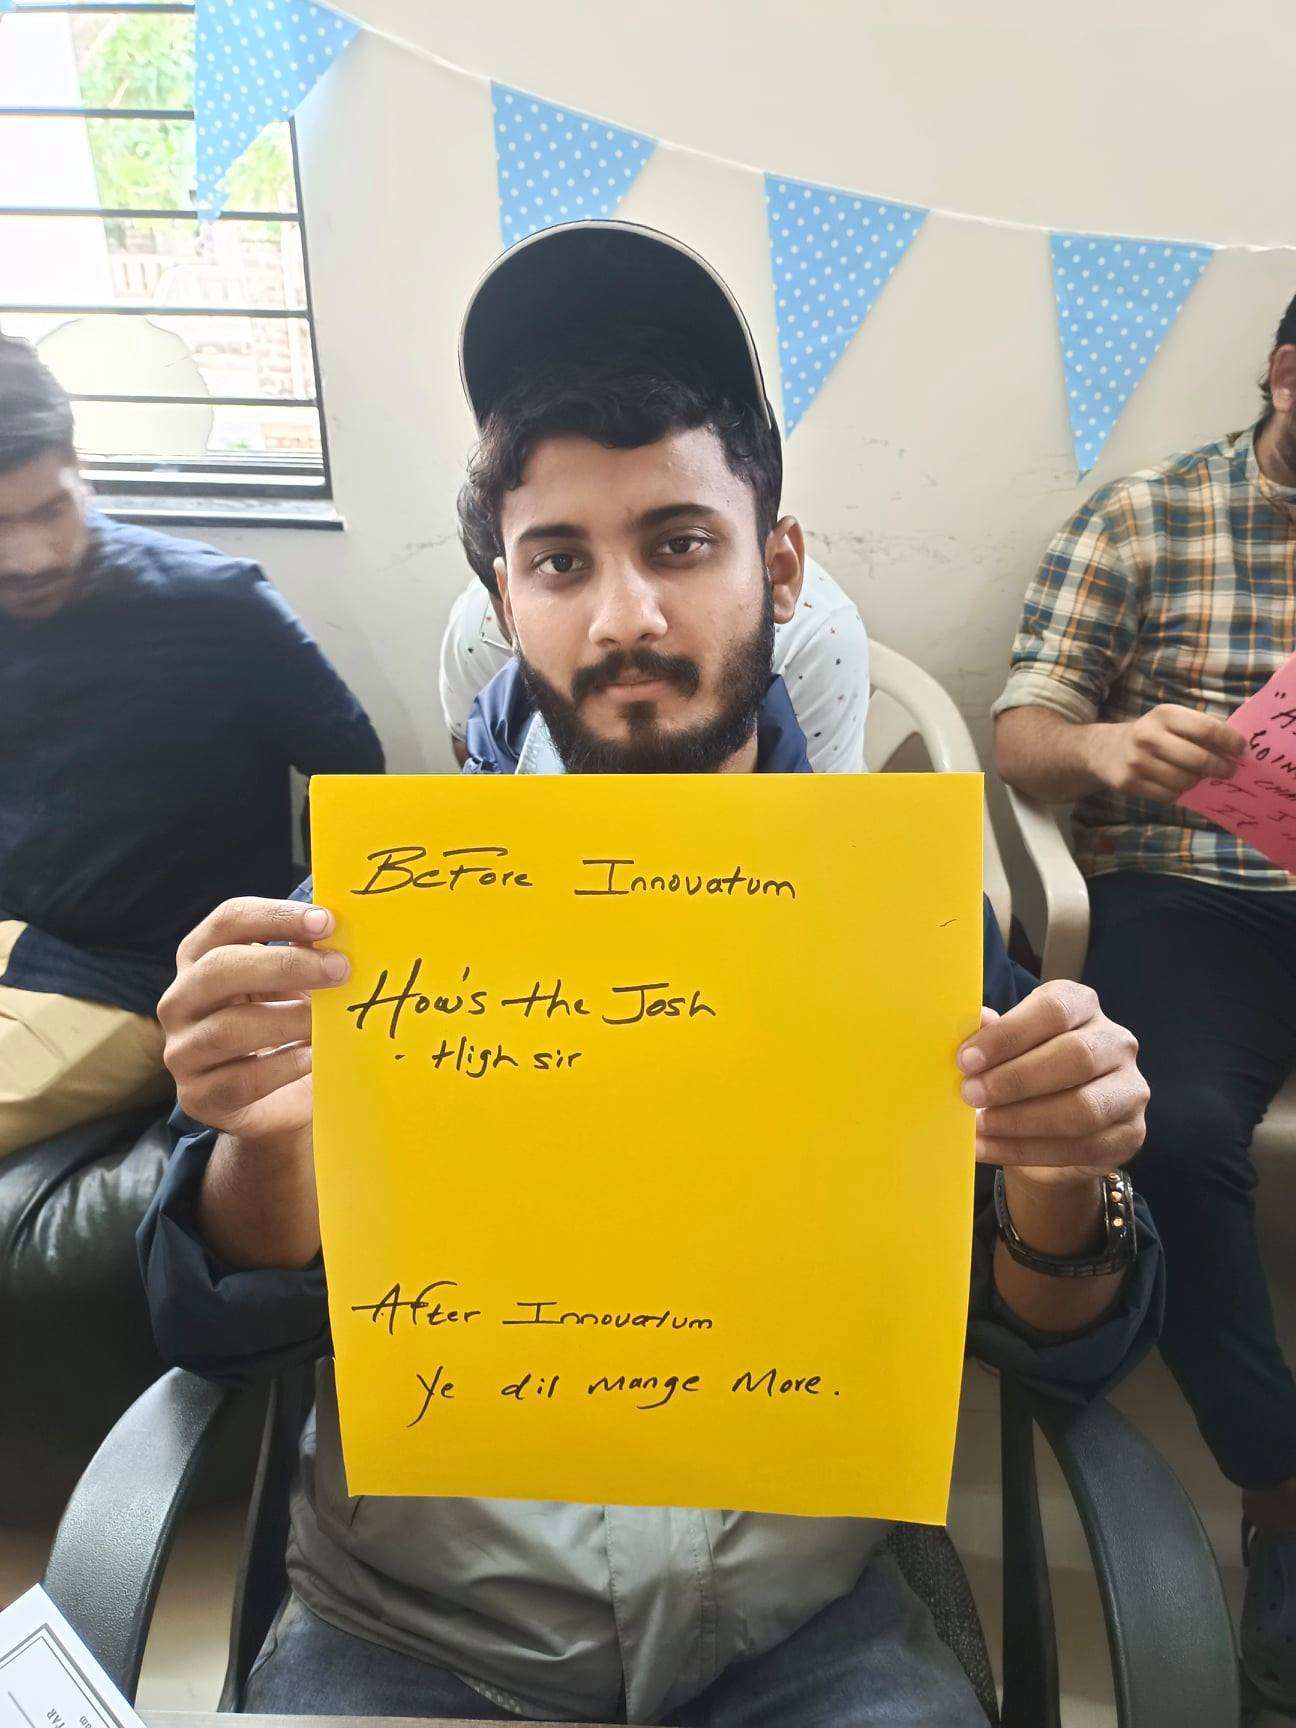 Before Innovatum
How's the Josh
- High sir
After Innovatum
Ye dil mange More.
"A
GOIN
CHA
OT I